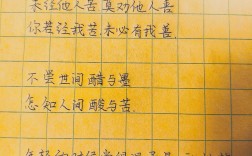 未经他人苦莫劝他人善
你若经我苦,未必有我善.
不尝世间醋与墨
怎知人间酸与苦.